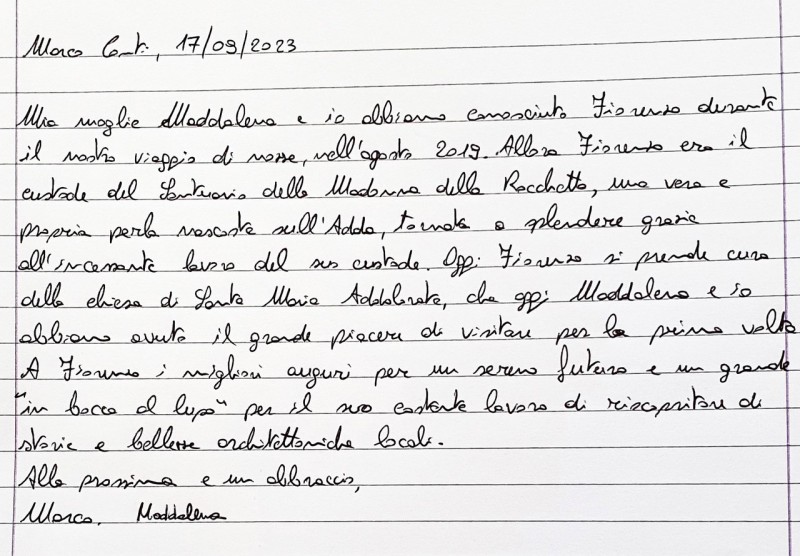 Marco Conti, 17/09/2023
Mia moglie Maddalena e io abbiamo conosciuto Fiorenzo durante
il nostro viaggio di nozze, nell'agosto 2019. Allora Fiorenzo era il
custode del Santuario della Madonna della Rocchetta, una vera e
propria perla nascosta sull'Adda, tornata a splendere grazie
all'incessante lavoro del suo custode. Oggi Fiorenzo si prende cura
della chiesa di Santa Maria Addolorata, che oggi Maddalena e io
abbiamo avuto il grande piacere di visitare per la prima volta
A Fiorenzo i migliori auguri per un sereno futuro e un grande
"in bocca al lupo" per il suo costante lavoro di riscopritore di
storie e bellezze architettoniche locali.
Alla prossima e un abbraccio,
Marco. Maddalena